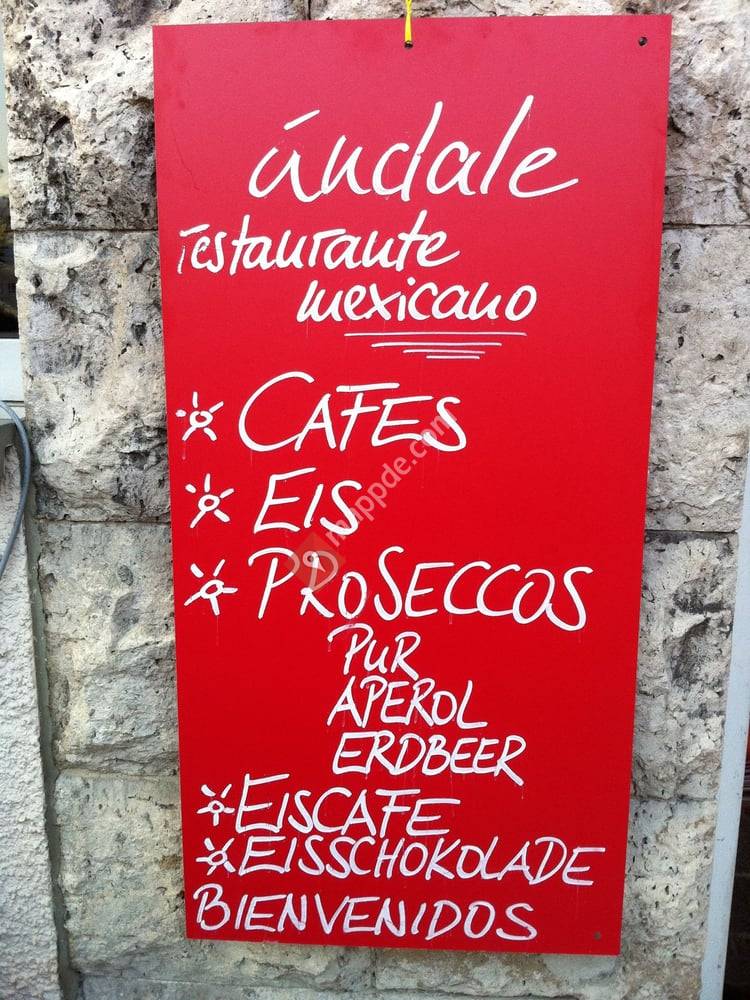 úndale
restaurante
mexicano
CAFES
EIS
PROSECCOS
PUR
APEROL
ERDBEER
EISCAFE
EISSCHOKOLADE
BIENVENIDOS
mappde.com